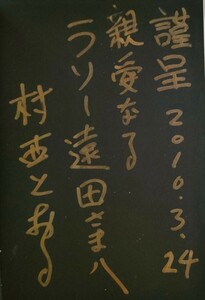 謹呈 2010.3.24
親愛なる
ラリー遠田さま八
村西とおる